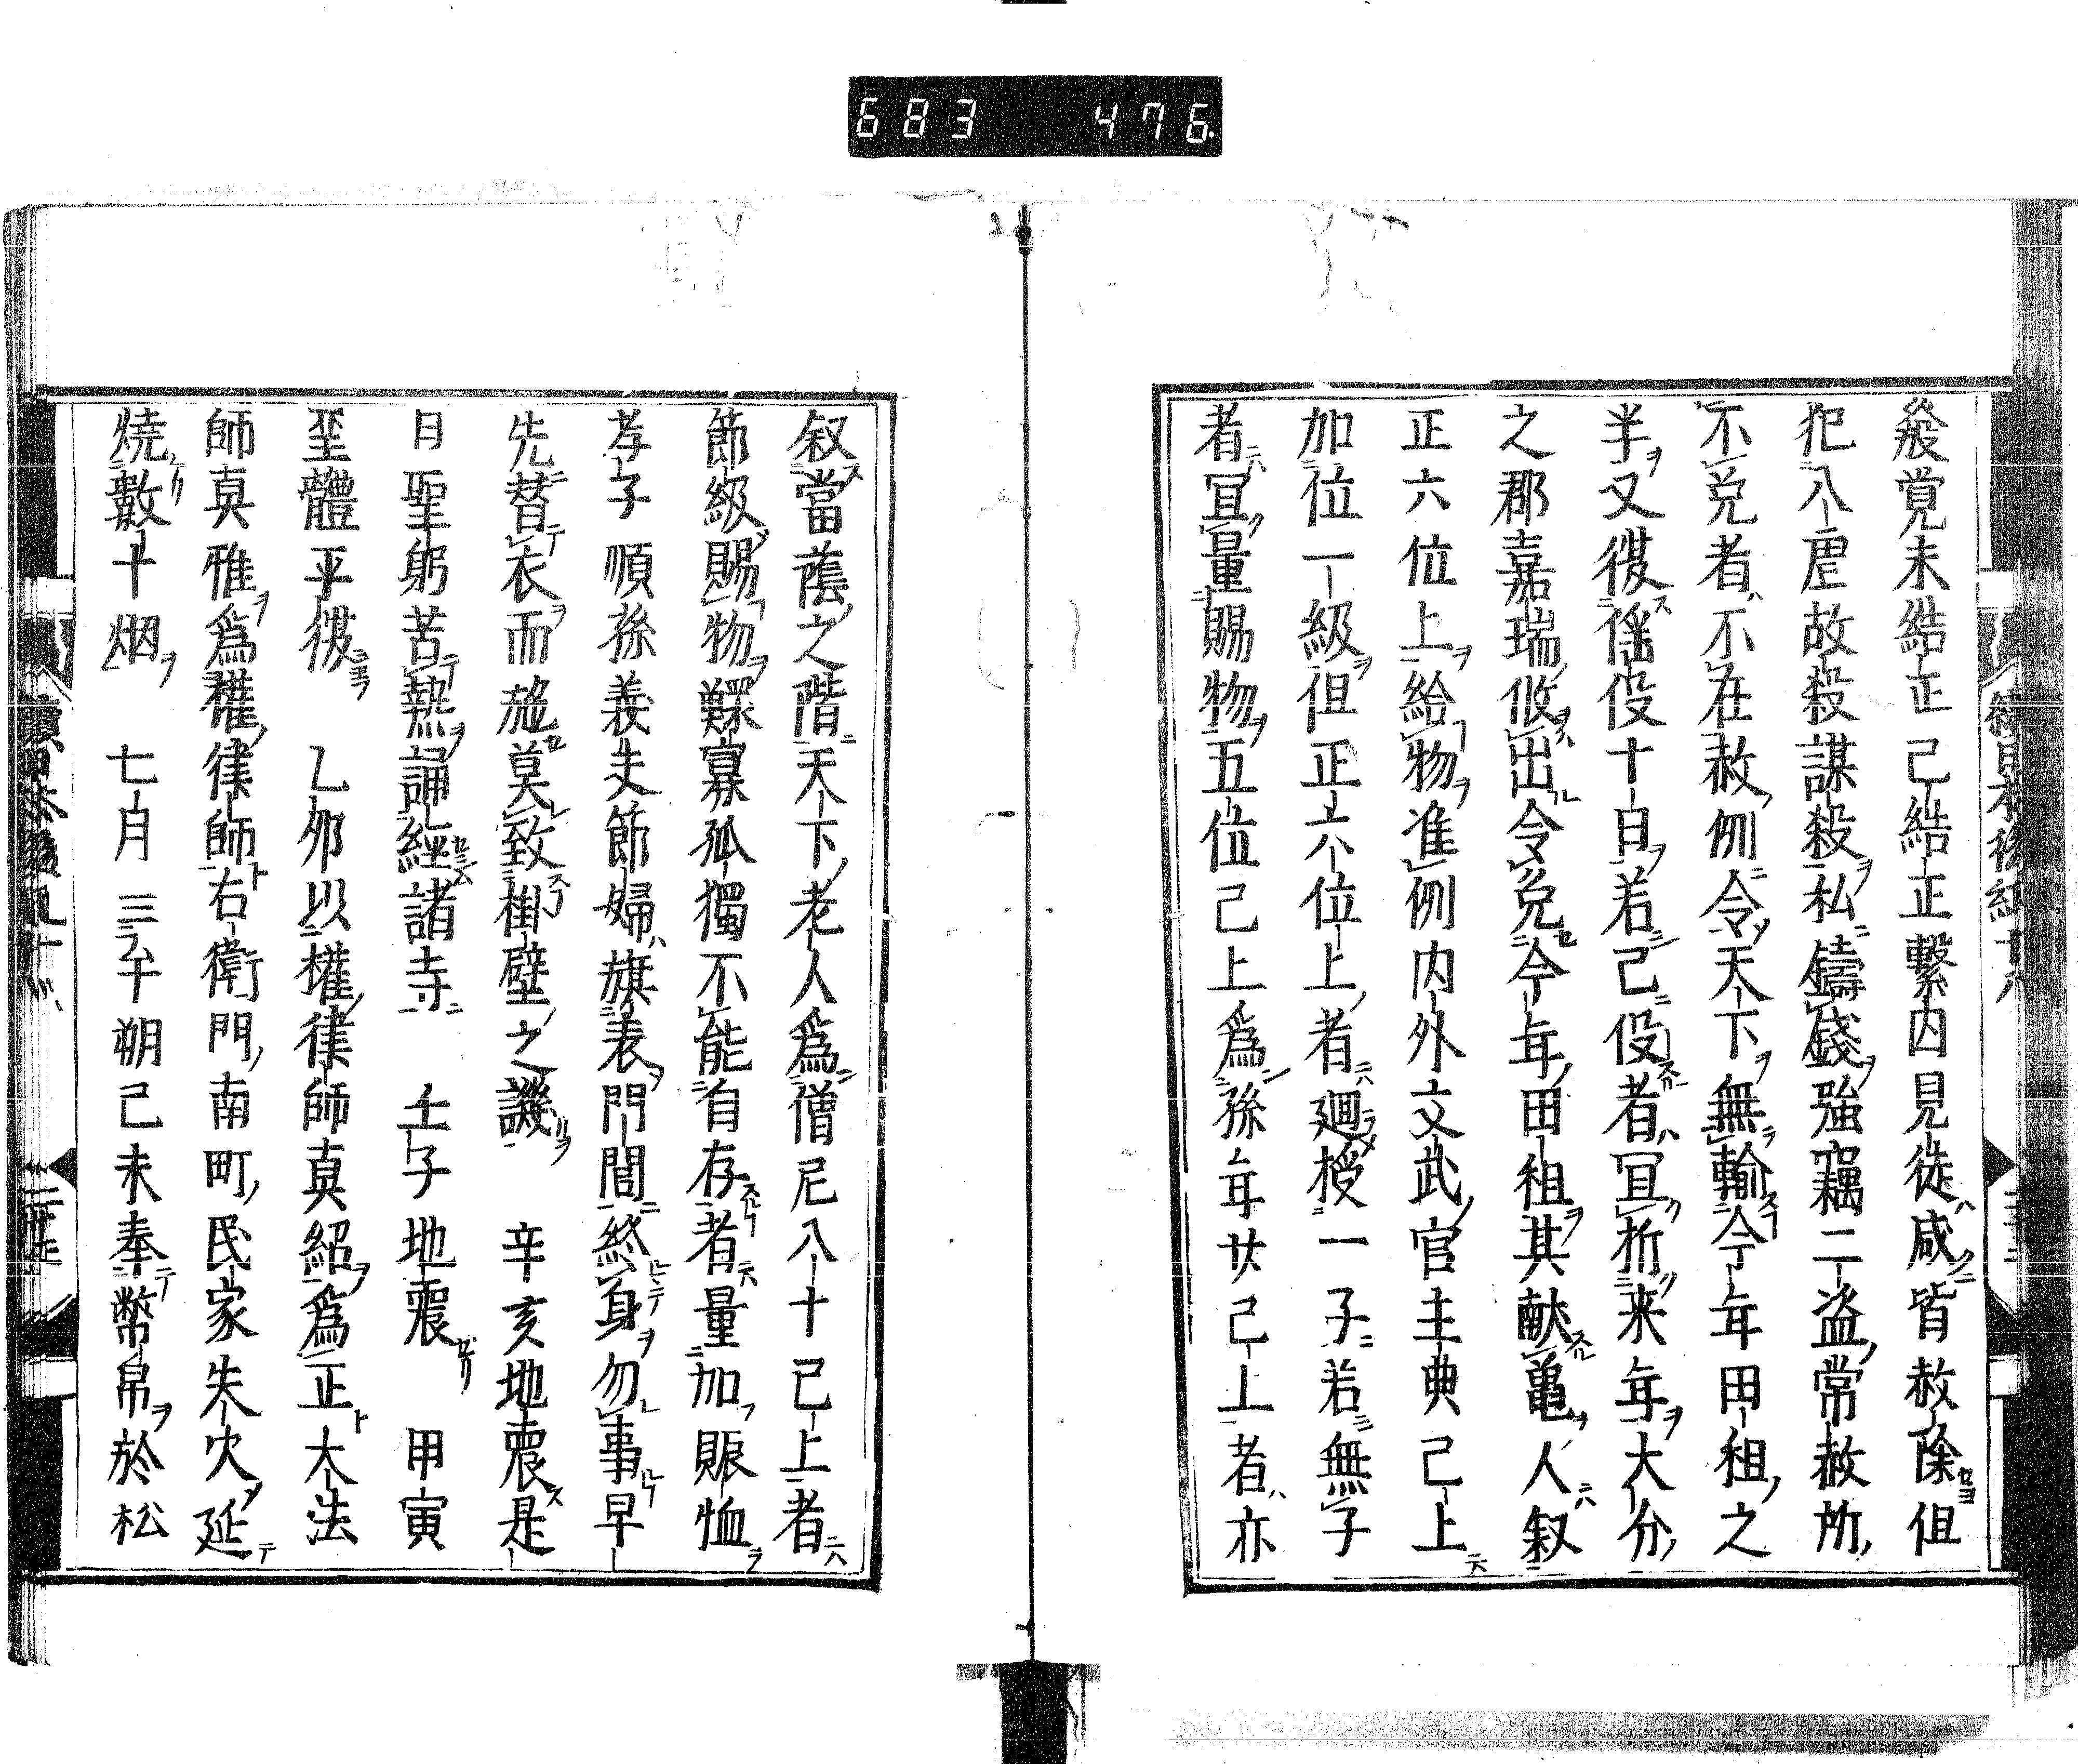 683 476
發覺未結正已結正繫囚見徒咸皆赦除但
犯八虐故殺謀殺私鑄錢強竊二盜常赦所
不免者不在赦例令天下無輸今年田租之
半又復徭役十日若已役者宜折来年大分
之郡嘉瑞攸出令免今年田租其献亀人叙
正六位上給物准例内外文武官主典已上
加位一級但正六位上者廻授一子若無子
者宜量賜物五位已上為孫年廿已上者亦
叙當蔭之階天下老人為僧尼八十已上者
節級賜物鰥寡孤獨不能自存者量加賑恤
孝子順孫義夫節婦旗表門閭終身勿事早
先替衣而施莫致掛壁之譏 辛亥地震是
日聖躬苦熱誦經諸寺 壬子地震 甲寅
聖體平復 乙卯以權律師真紹為正大法
師真雅為權律師右衛門南町民家失火延
燒數十烟 七月戊午朔己未奉幣帛於松